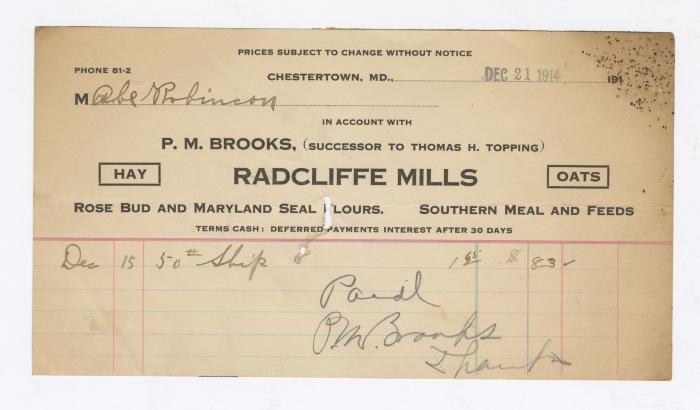 PRICES SUBJECT TO CHANGE WITHOUT NOTICE
PHONE 81-2
CHESTERTOWN, MD., DEC 21 1914 191
M Abe Robinson
IN ACCOUNT WITH
P. M. BROOKS, (SUCCESSOR TO THOMAS H. TOPPING)
HAY RADCLIFFE MILLS OATS
ROSE BUD AND MARYLAND SEAL FLOURS. SOUTHERN MEAL AND FEEDS
TERMS CASH: DEFERRED PAYMENTS INTEREST AFTER 30 DAYS
Dec 15 50# Ship 1 65 $ 83
Paid
P.M. Brooks
Thanks